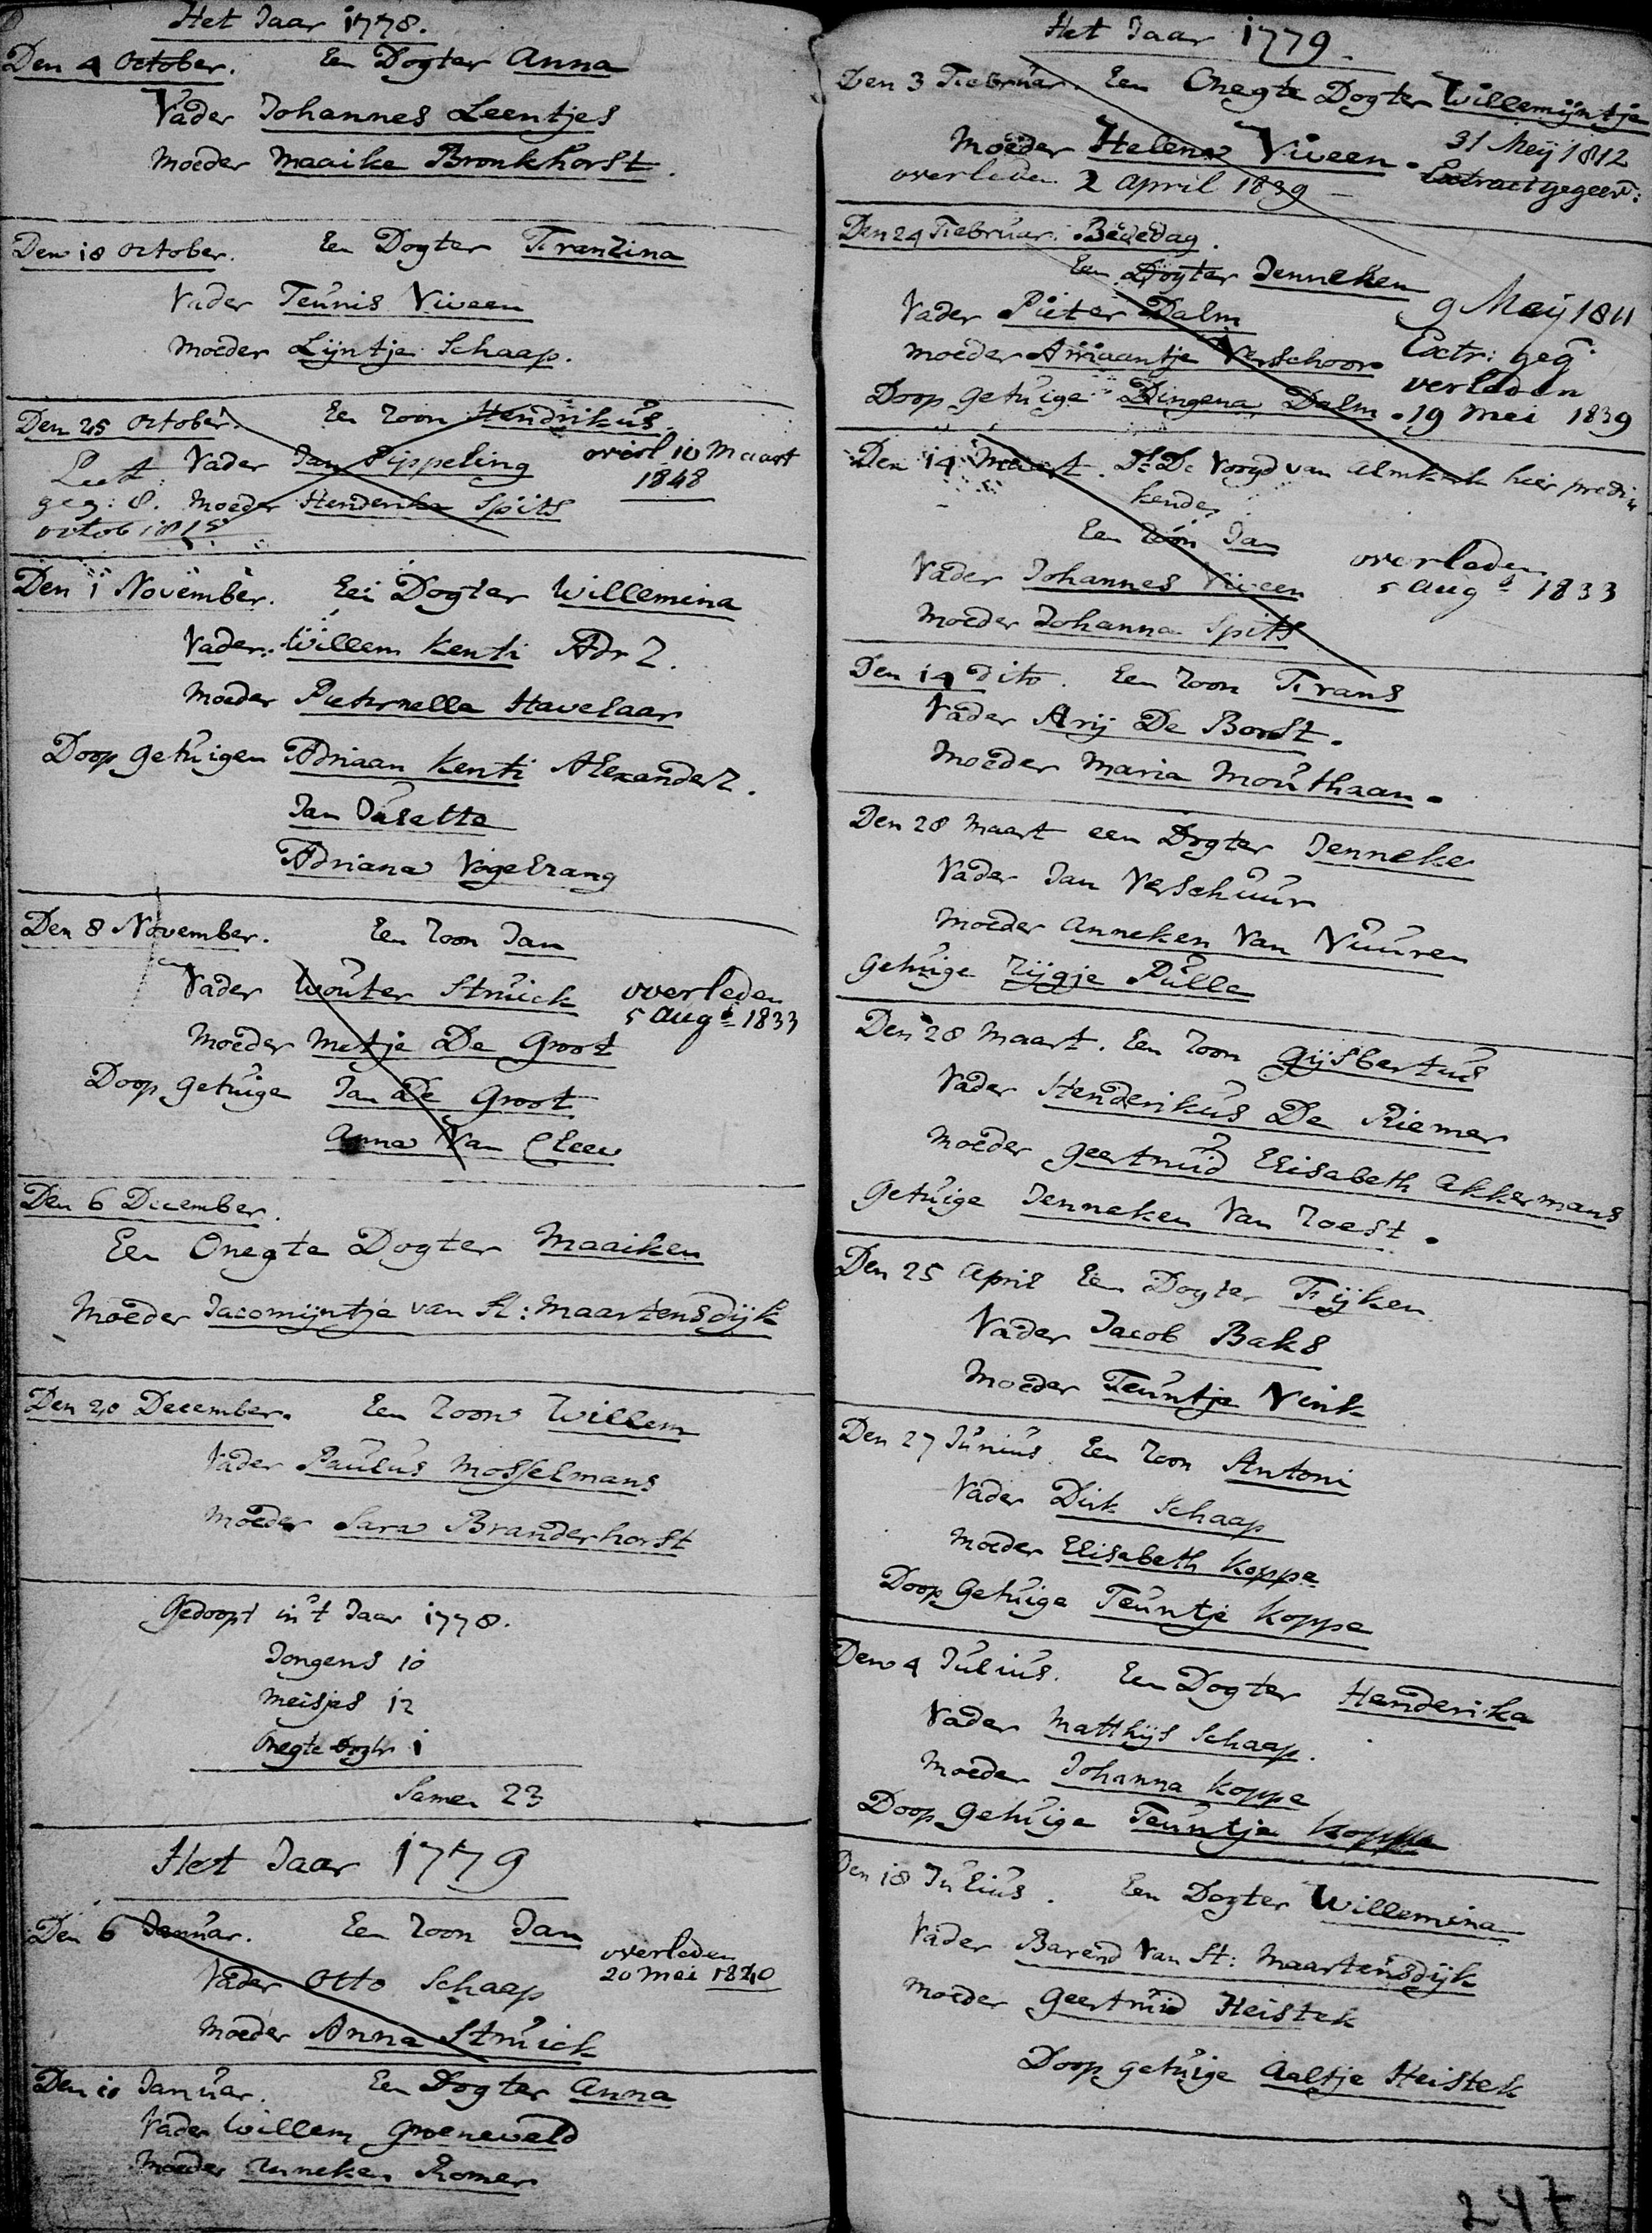 Het Jaar 1778.
Den 4 October. Een Dogter Anna
Vader Johannes Leentjes
Moeder Maaike Bronkhorst.
Den 18 October. Een Dogter Franzina
Vader Teunis Viveen
Moeder Lijntje Schaap.
Den 25 October. Een Zoon Hendrikus.
Vader Jan Pippeling overl 10 Maart
1848
geg: 8. Moeder Henderika Spits
octob 1815
Den 1 November. Een Dogter Willemina
Vader Willem Kenti Adr Z.
Moeder Pieternella Havelaar
Doop getuigen Adriaan Kenti Alexander Z.
Jan Dusette
Adriana Vogelzang
Den 8 November. Een Zoon Jan
Vader Wouter Struick overleden
5 Augs 1833
Moeder Metje De Groot
Doop getuige Jan De Groot
Anna Van Cleew
Den 6 December.
Een Onegte Dogter Maaiken
Moeder Jacomijntje van St: Maartensdijk
Den 20 December. Een Zoon Willem
Vader Paulus Mosselmans
Moeder Sara Branderhorst
Gedoopt in 't Jaar 1778.
Jongens 10
Meisjes 12
Onegte Dogtr 1
Samen 23
Het Jaar 1779
Den 6 Januar. Een Zoon Jan
overleden
20 mei 1840
Vader Otto Schaap
Moeder Anna Struick
Den 10 Januar. Een Dogter Anna
Vader Willem Groeneveld
Moeder Anneken Romer
Het Jaar 1779.
Den 3 Februar. Een Onegte Dogter Willemijntje
31 Meij 1812
Moeder Helena Viveen. Extract gegeev:
overleden 2 april 1839
Den 24 Februar. Bededag.
Een Dogter Jenneken
9 Meij 1811
Vader Pieter Dalm
Extr: geg:
Moeder Ariaantje Verschoor
verleden
Doop getuige Dingena Dalm. 19 mei 1839
Den 14 Maart. Ds De Voogd van Almkerk hier predi
kende
Een Zoon Jan
overleden
5 Augs 1833
Vader Johannes Viveen
Moeder Johanna Spits
Den 14 Dito. Een Zoon Frans
Vader Arij De Borst.
Moeder Maria Mouthaan.
Den 28 Maart een Dogter Jenneke
Vader Jan Verschuur
Moeder Anneken Van Vuuren
Getuige Zijgje Pulle
Den 28 Maart. Een Zoon Gijsbertus
Vader Henderikus De Riemer
Moeder Geertruid Elisabeth Akkermans
Getuige Jenneken Van Zoest.
Den 25 April Een Dogter Fijken
Vader Jacob Baks
Moeder Teuntje Vink
Den 27 Junius. Een Zoon Antoni
Vader Dirk Schaap
Moeder Elisabeth Koppe
Doop Getuige Teuntje Koppe
Den 4 Julius. Een Dogter Henderika
Vader Matthijs Schaap.
Moeder Johanna Koppe
Doop Getuige Teuntje Koppe
Den 18 Julius. Een Dogter Willemina
Vader Barend Van St: Maartensdijk
Moeder Geertruid Heistek
Doop getuige Aaltje Heistek
247